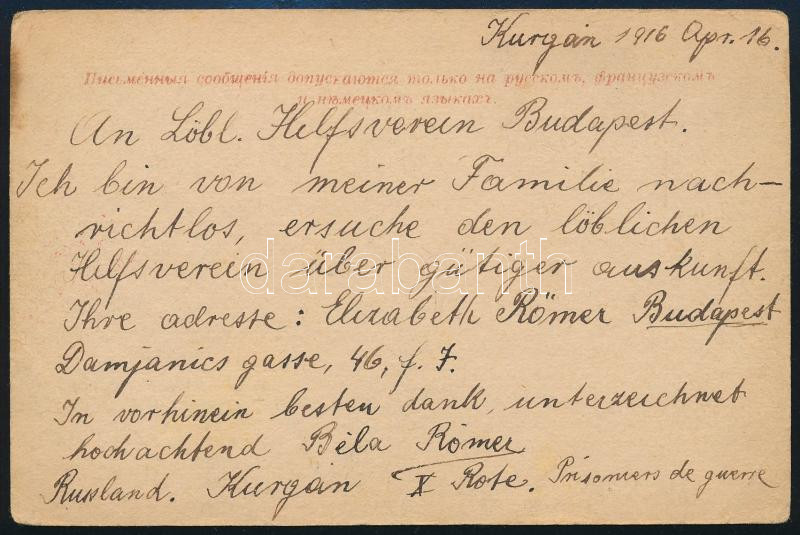 Kurgán 1916 Apr. 16.
Письменныя сообщенія допускаются только на русскомъ, французскомъ
и нѣмецкомъ языкахъ.
An Löbl. Helfsverein Budapest.
Ich bin von meiner Familie nach-
richtlos, ersuche den löblichen
Helfsverein über gütiger auskunft.
darabanth
Ihre adreste: Elizabeth Römer Budapest
Damjanics gasse, 46, f. 7.
In vorhinein besten dank, unterzeichnet
hochachtend Béla Römer
Russland. Kurgán X Rote. Prisoniers de guerre